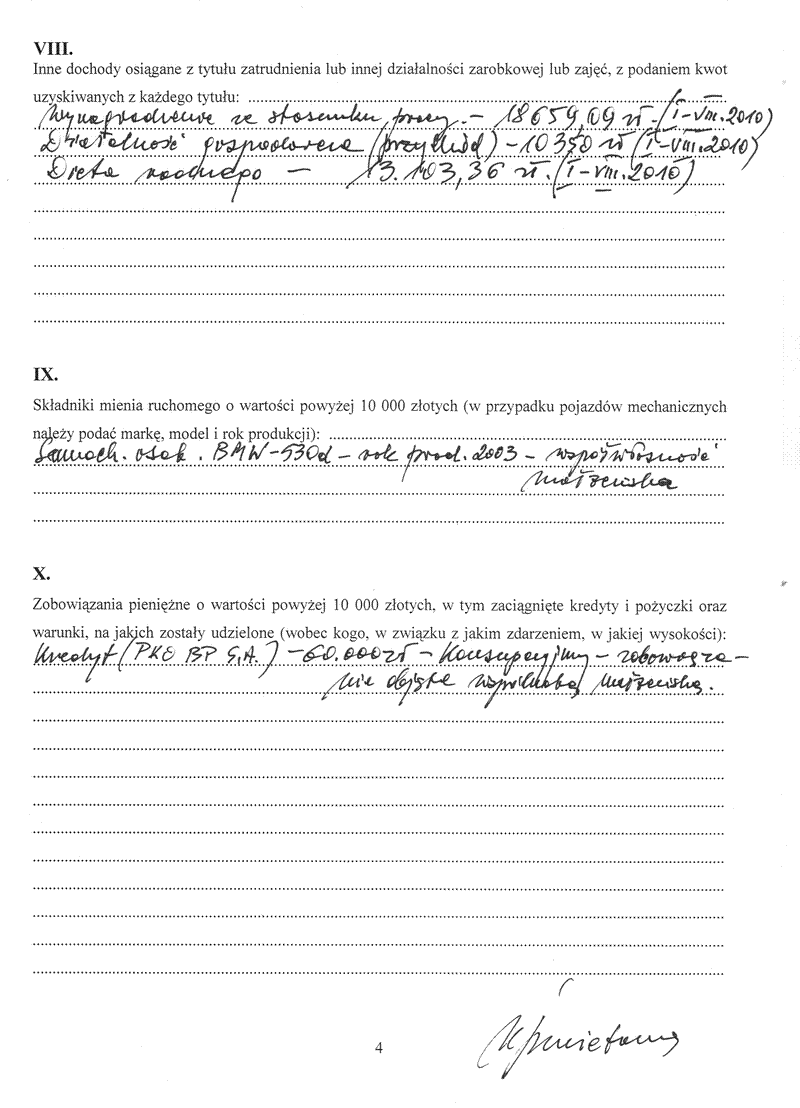 VIII.
Inne dochody osiągane z tytułu zatrudnienia lub innej działalności zarobkowej lub zajęć, z podaniem kwot
uzyskiwanych z każdego tytułu:
Wynagrodzenie ze stosunku pracy – 18659,09 zł. (I–VIII.2010)
Działalność gospodarcza (przychód) – 10350 zł (I–VIII.2010)
Dieta radnego – 13.103,36 zł. (I–VIII.2010)
IX.
Składniki mienia ruchomego o wartości powyżej 10 000 złotych (w przypadku pojazdów mechanicznych
należy podać markę, model i rok produkcji):
Samoch. osob. BMW-530d – rok prod. 2003 – współwłasność
małżeńska
X.
Zobowiązania pieniężne o wartości powyżej 10 000 złotych, w tym zaciągnięte kredyty i pożyczki oraz
warunki, na jakich zostały udzielone (wobec kogo, w związku z jakim zdarzeniem, w jakiej wysokości):
Kredyt (PKO BP S.A.) – 60.000zł – konsupcyjny – zobowiąza–
nie objęte wspólnotą małżeńską.
4